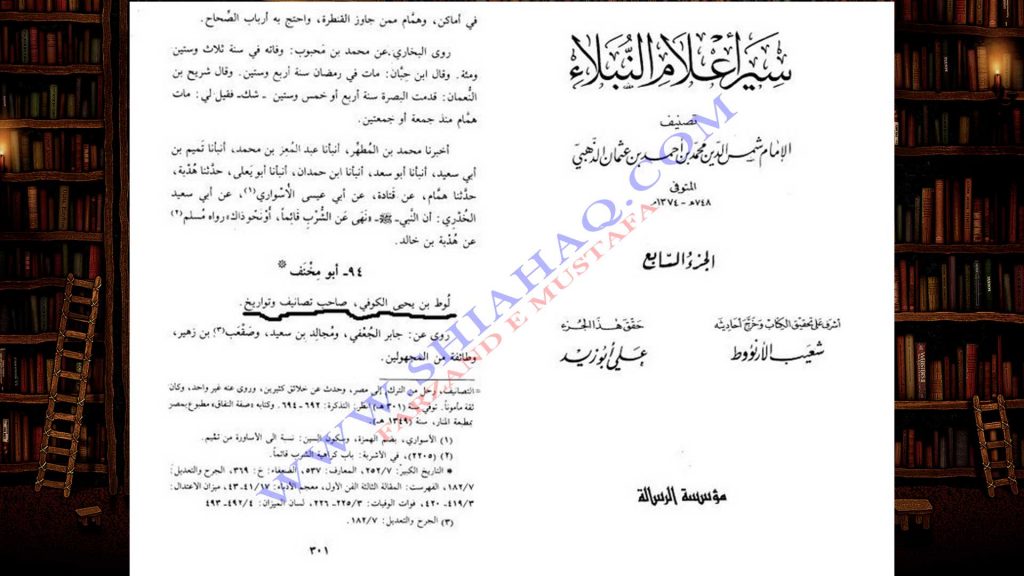 سير أعلام النبلاء
تصنيف
الإمام شمس الدين محمد بن أحمد بن عثمان الذهبي
المتوفى
٧٤٨هـ - ١٣٧٤م
الجزء السابع
أشرف على تحقيق الكتاب وخرج أحاديثه
شعيب الأرنؤوط
حقق هذا الجزء
علي أبو زيد
مؤسسة الرسالة
في أماكن، وهمَّام ممن جاوز القنطرة، واحتج به أرباب الصِّحاح.
روى البخاري عن محمد بن مَحبوب: وفاته في سنة ثلاث وستين
ومئة. وقال ابن حِبَّان: مات في رمضان سنة أربع وستين. وقال شريح بن
النُّعمان: قدمت البصرة سنة أربع أو خمس وستين ـ شك ـ فقيل لي: مات
همَّام منذ جمعة أو جمعتين.
أخبرنا محمد بن المُطهَّر، أنبأنا عبد المُعِز بن محمد، أنبأنا تَميم بن
أبي سعيد، أنبأنا أبو سعد، أنبأنا ابن حمدان، أنبأنا أبو يَعلى، حدَّثنا هُدْبة،
حدَّثنا همَّام، عن قَتادة، عن أبي عيسى الأُسْواري(١)، عن أبي سعيد
الخُدْري: أن النَّبي ـ ﷺ ـ «نَهَى عَنِ الشُّرْبِ قَائِماً، أَوْ نَحْوِ ذاك» رواه مُسلم(٢)
عن هُدْبة بن خالد.
٩٤ـ أبو مِخْنَف *
لُوط بن يحيى الكوفي، صاحب تصانيف وتواريخ.
روى عن: جابر الجُعْفي، ومُجالِد بن سعيد، وصَقْعَب(٣) بن زهير،
وطائفة من المجهولين.
= التصانيف، رحل من الترك إلى مصر، وحدث عن خلائق كثيرين، وروى عنه غير واحد، وكان
ثقة مأموناً. توفي سنة (٣٠١ هـ) انظر: التذكرة: ٦٩٢ ـ ٦٩٤. وكتابه «صفة النفاق» مطبوع بمصر
بمطبعة المنار، سنة (١٣٤٩ هـ).
(١) الأسواري، بضم الهمزة، وسكون السين: نسبة الى الأساورة من تميم.
(٢) (٢٢٠٥)، في الأشربة: باب كراهية الشرب قائماً.
* التاريخ الكبير: ٢٥٢/٧، المعارف: ٥٣٧، الضعفاء: خ: ٣٦٩، الجرح والتعديل:
١٨٢/٧، الفهرست: المقالة الثالثة الفن الأول، معجم الأدباء: ٤١/١٧ ـ ٤٣، ميزان الاعتدال:
٤١٩/٣ ـ ٤٢٠، فوات الوفيات: ٢٢٥/٣ ـ ٢٢٦، لسان الميزان: ٤٩٢/٤ ـ ٤٩٣
(٣) الجرح والتعديل: ١٨٢/٧.
٣٠١
WWW.SHIAHAQ.COM
FARZAND E MUSTAFA